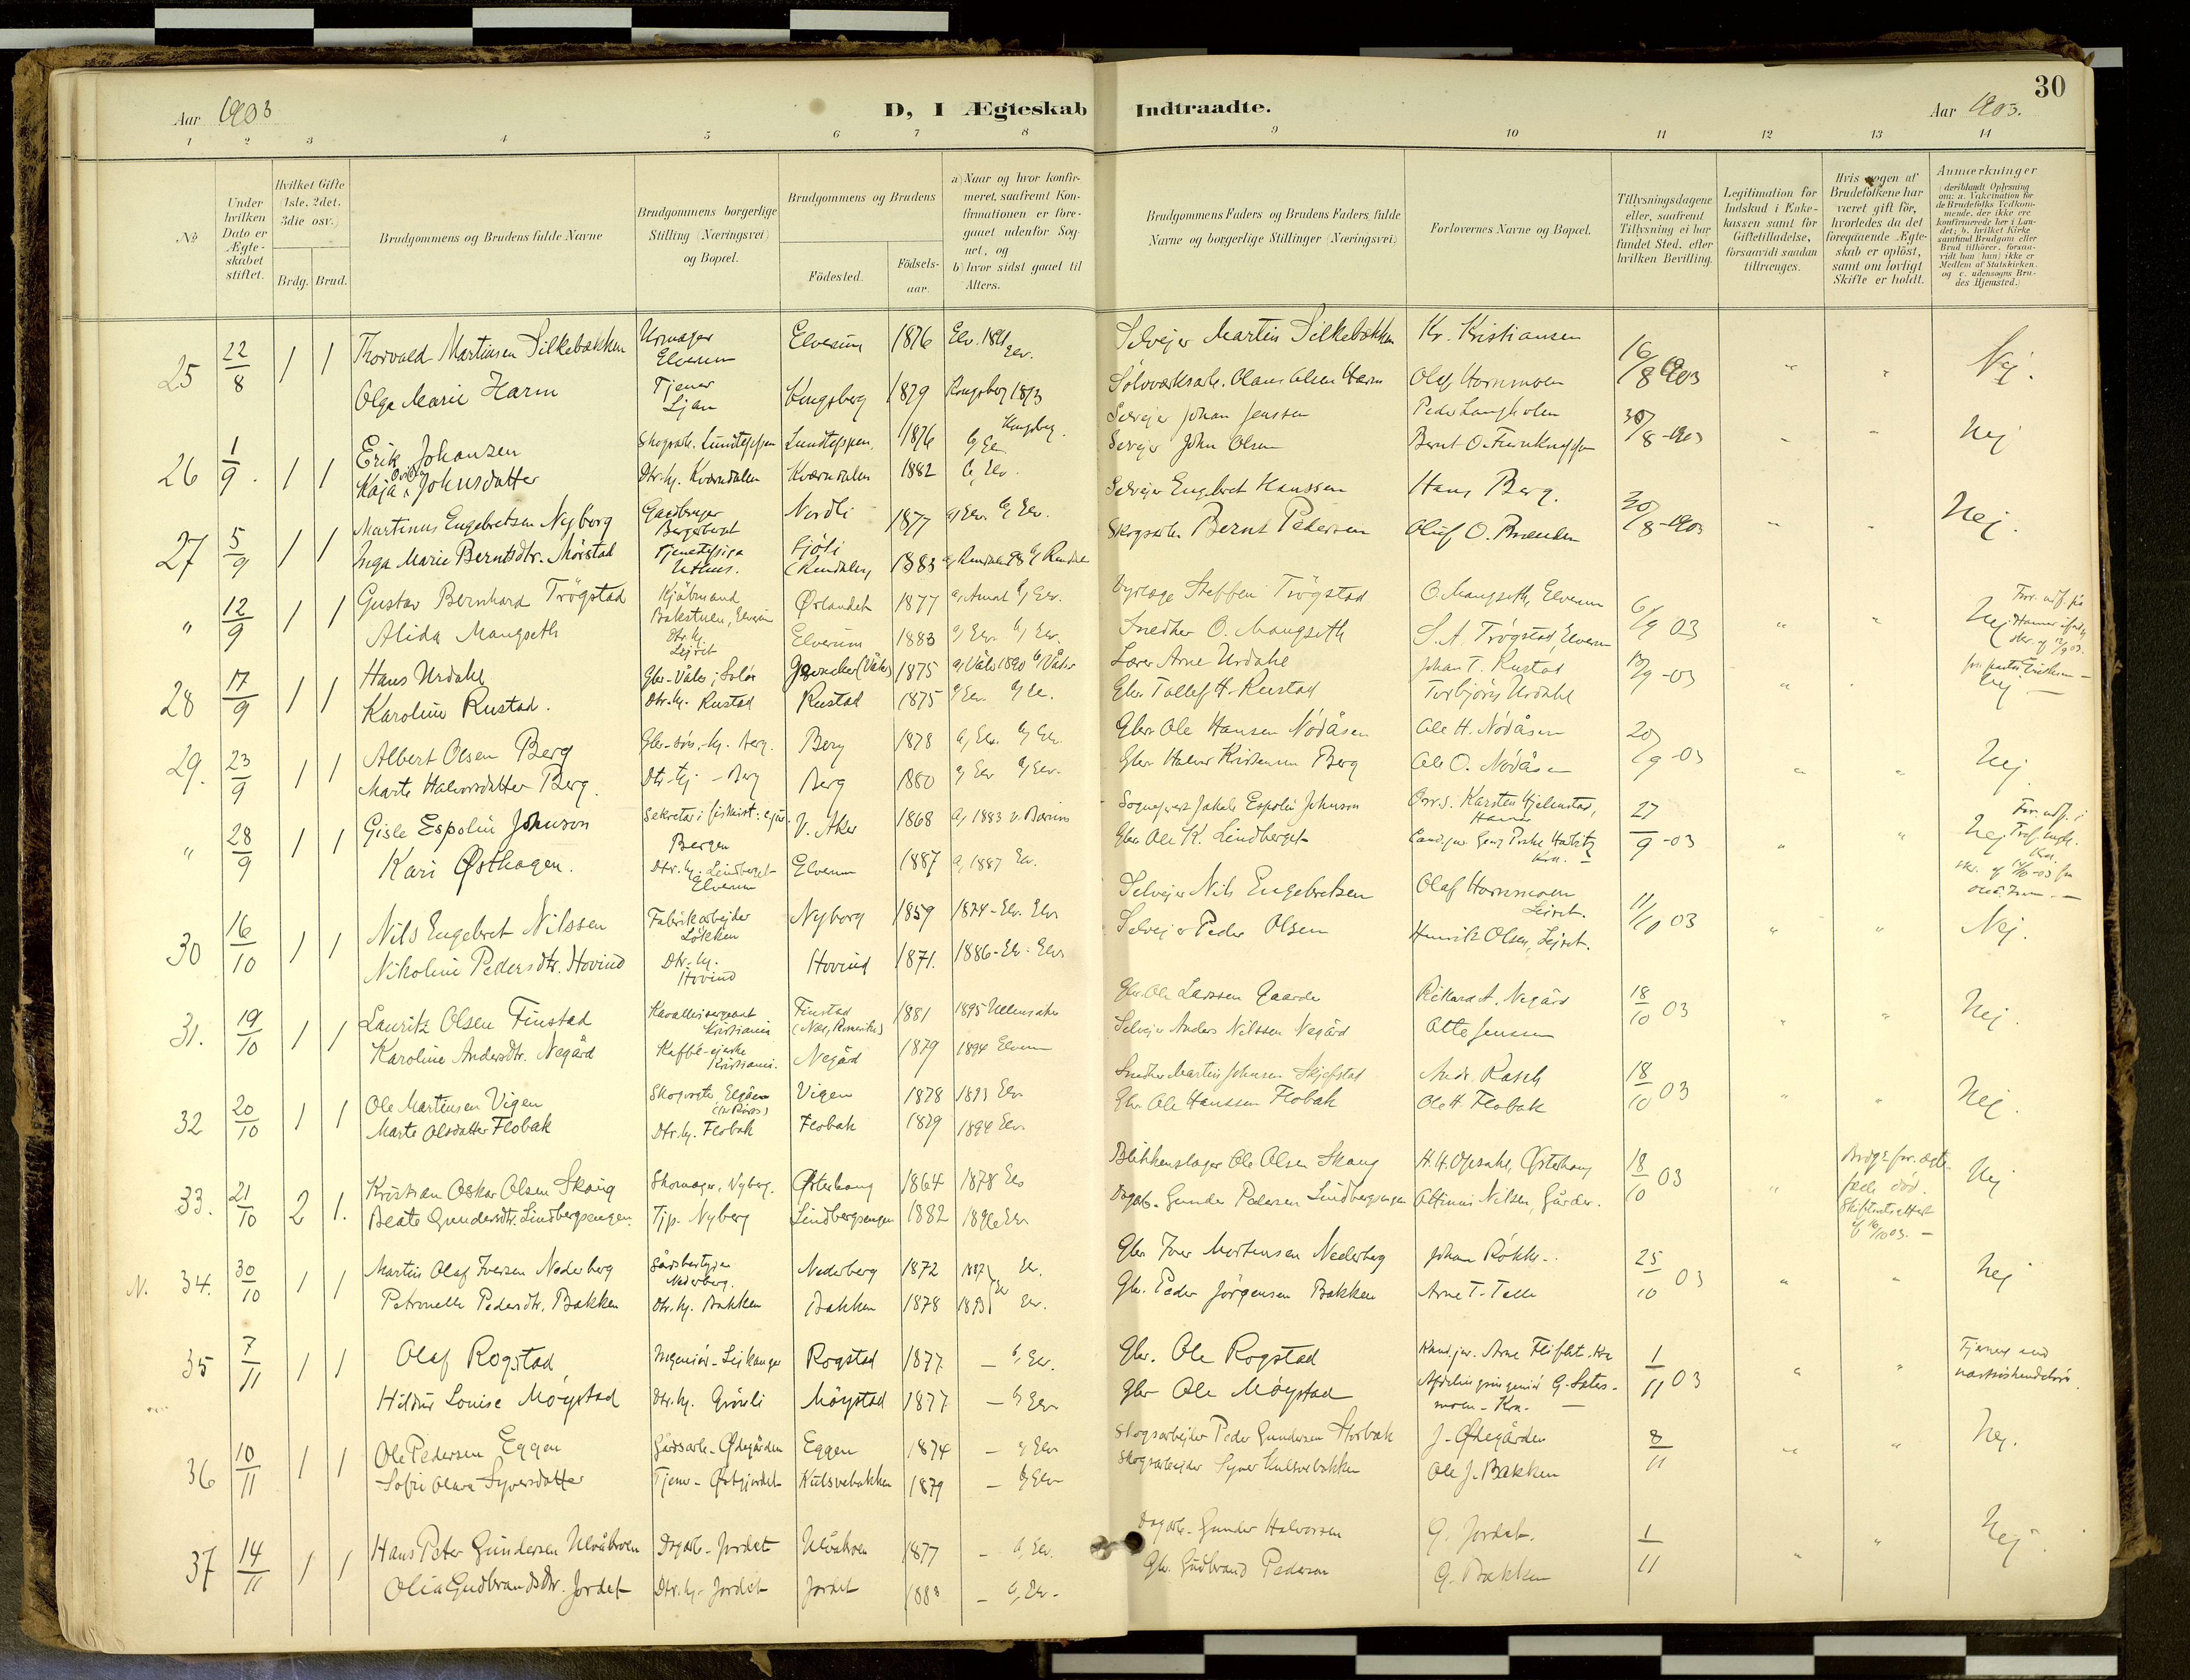 30
Aar 1903
D, I Ægteskab Indtraadte.
Aar 1903.
1 2 3 4 5 6 7 8 9 10 11 12 13 14
No
Under hvilken Dato er Ægteskabet stiftet.
Hvilket Gifte (1ste, 2det, 3die osv.)
Brdg. Brud.
Brudgommens og Brudens fulde Navne
Brudgommens borgerlige Stilling (Næringsvei) og Bopæl.
Brudgommens og Brudens
Födested.
Födsels-aar.
a) Naar og hvor konfirmeret, saafremt Konfirmationen er foregaaet udenfor Sognet, og
b) hvor sidst gaaet til Alters.
Brudgommens Faders og Brudens Faders fulde Navne og borgerlige Stillinger (Næringsvei)
Forlovernes Navne og Bopæl.
Tillysningsdagene eller, saafremt Tillysning ei har fundet Sted, efter hvilken Bevilling.
Legitimation for Indskud i Enkekassen samt for Giftetilladelse, forsaavidt saadan tiltrænges.
Hvis nogen af Brudefolkene har været gift för, hvorledes da det foregaaende Ægteskab er oplöst, samt om lovligt Skifte er holdt.
Anmærkninger (deriblandt Oplysning om: a. Vakcination for de Brudefolks Vedkommende, der ikke ere konfirmerede her i Landet; b. hvilket Kirkesamfund Brudgom eller Brud tilhörer, forsaavidt han (hun) ikke er Medlem af Statskirken, og c. udensogns Brudes Hjemsted.)
25 22/8 1 1 Thorvald Martinsen Silkebakken Urmager Elverum Elverum 1876 Elv. 1891 Elv. Selvejer Martin Silkebakken Kr. Kristiansen 16/8 1903 " " Nej.
Olga Marie Harm Tjener Ljan Kongsberg 1879 Kongsberg 1893 Kongsberg. Sølvverksarb. Olaus Olsen Harm Olaf Hornmoen
26 1/9 1 1 Erik Johansen Skogsarb. Lundteppen Lundteppen 1876 b, Elv Selvejer Johan Jenssen Peder Langholen 30/8 - 1903 " " Nej
Kaja Johnsdatter Dtr. hj. Kværndalen Kværndalen 1882 b, Elv. Selvejer John Olsen Bernt O.
27 5/9 1 1 Martinus Engebretsen Nyborg Gaardbruger Bergeberget Nordli 1877 a, Elv. b, Elv. Selvejer Engebret Hanssen Hans Berg. 30/8 - 1903 " " Nej.
Inga Marie Berntsdtr. Mörstad Tjenestepige (Rendalen) 1883 Skogsarb. Bernt Pedersen Oluf O. Brænden
" 12/9 1 1 Gustav Bernhard Trögstad Kjöbmand Bakstuen, Elverum Ørlandet 1877 b, Elv. Dyrlæge Steffen Trögstad O. Mangseth, Elverum 6/9 03 " " Nej
Alida Mangseth Dtr. hj. Lejret Elverum 1883 a, Elv. b, Elv. Snedker O. Mangseth S. A. Trögstad, Elverum
28 17/9 1 1 Hans Urdahl Gbr. Våler i Solör (Våler) 1875 a, Våler 1890 b, Våler Lærer Arne Urdahl Johan T. Rustad 13/9 - 03 " Nej
Karoline Rustad. Dtr. hj. Rustad Rustad 1875 a, Elv. b, Elv. Gbr Tollef H. Rustad Torbjörn Urdahl
29. 23/9 1 1 Albert Olsen Berg Gbr-sön, hj. Berg. Berg 1878 a, Elv. b, Elv. Gbr. Ole Hansen Nödåsen Ole H. Nödåsen 20/9 - 03 " " Nej
Marte Halvorsdatter Berg. Dtr. hj. - Berg Berg 1880 a, Elv b, Elv. Gbr. Halvor Kristiansen Berg Ole O. Nödåsen
" 28/9 1 1 Gisle Espolin Johnson Bergen V. Aker 1868 a, 1883 v. Bærum Sogneprest Jakob Espolin Johnson Karsten Hjelmstad, Hamar 27/9 - 03 " " Nej
Kari Østhagen. Dtr. hj. Lindberget Elverum Elverum 1887 a, 1887 Elv. Gbr. Ole K. Lindberget
30 16/10 1 1 Nils Engebret Nilssen Fabrikarbejder Løkken Nyborg 1859 1874 - Elv. Elv. Selvejer Nils Engebretsen Olaf Hornmoen Lejret. 11/10 03 " " Nej.
Nikoline Pedersdtr. Hovind Dtr. hj. Hovind Hovind 1871. 1886 - Elv. Elv. Selvejer Peder Olsen Henrik Olsen, Lejret.
31. 19/10 1 1 Lauritz Olsen Finstad Kavallerisergeant Kristiania Finstad (Nes, Romerike) 1881 1895 Ullensaker Gbr. Ole Larssen Gaarder Rikard A. Negård 18/10 03 " " Nej.
Karoline Andersdtr. Negård Kaffé-ejerske Kristiania. Negård 1879 1894 Elverum Selvejer Anders Nilssen Negård Otto Jenssen
32 20/10 1 1 Ole Martinsen Vigen Skogvogter, Elgåen (Pr Röros) Vigen 1878 1893 Elv. Snedker Martin Johnsen Skjefstad Andr. Rasch 18/10 03 " " Nej.
Marte Olsdatter Flobak Dtr. hj. Flobak Flobak 1879 1894 Elv. Gbr. Ole Hanssen Flobak Ole H. Flobak
33. 21/10 2 1. Kristian Oskar Olsen Skaug Skomager, Nyberg. Østerhaug 1864 1878 Elv Blikkenslager Ole Olsen Skaug H. H. Opsahl, Østerhaug 18/10 03 " Brdg.s for. ægtefælle död. Skifteretsattest af 16/10 03. - Nej
Beate Gundersdtr. Lindbergsengen. Tjp. Nyberg Lindbergsengen 1882 1896 Elv. Dagarb. Gunder Pedersen Lindbergsengen Altinius Nilsen, Gårder.
N. 34. 30/10 1 1 Martin Olaf Iversen Nederberg Gårdbestyrer Nederberg. Nederberg 1872 1887 Elv Elv. Gbr. Iver Mortensen Nederberg Johan Rökke. 25/10 03 " " Nej
Petronelle Pedersdtr. Bakken Dtr. hj. Bakken Bakken 1878 1893 Elv. Gbr. Peder Jörgensen Bakken Arne T. Telle
35 7/11 1 1 Olaf Rogstad Ingeniör - Leikanger Rogstad 1877 - b, Elv. Gbr. Ole Rogstad Kand. jur. Arne Kra 1/11 03 " "
Hildur Louise Möystad Dtr. hj. Grönli Möystad 1877 - b, Elv. Gbr Ole Möystad Afdelingsingeniör G. Sætersmoen - Kra.
36 10/11 1 1 Ole Pedersen Eggen Gårdsarb. - Ødegården Eggen 1874 - b, Elv Skogsarbejder Peder Gundersen Storbak J. Ødegården 8/11 " " Nej.
Sofie Olava Syversdatter Tjener - Østgjordet Kulsvebakken 1879 - b, Elv Skogsarbejder Syver Kulsvebakken Ole J. Bakken
37 14/11 1 1 Hans Peter Gundersen Ulvåkroen Dagarb - Jordet Ulvåkroen 1877 - b, Elv. Dagarb. Gunder Halvorsen G. Jordet. 1/11 " " Nej.
Olia Gudbrandsdtr. Jordet Dtr. hj. - Jordet Jordet 1883 - b, Elv. Gbr. Gudbrand Pederson G. Bakken